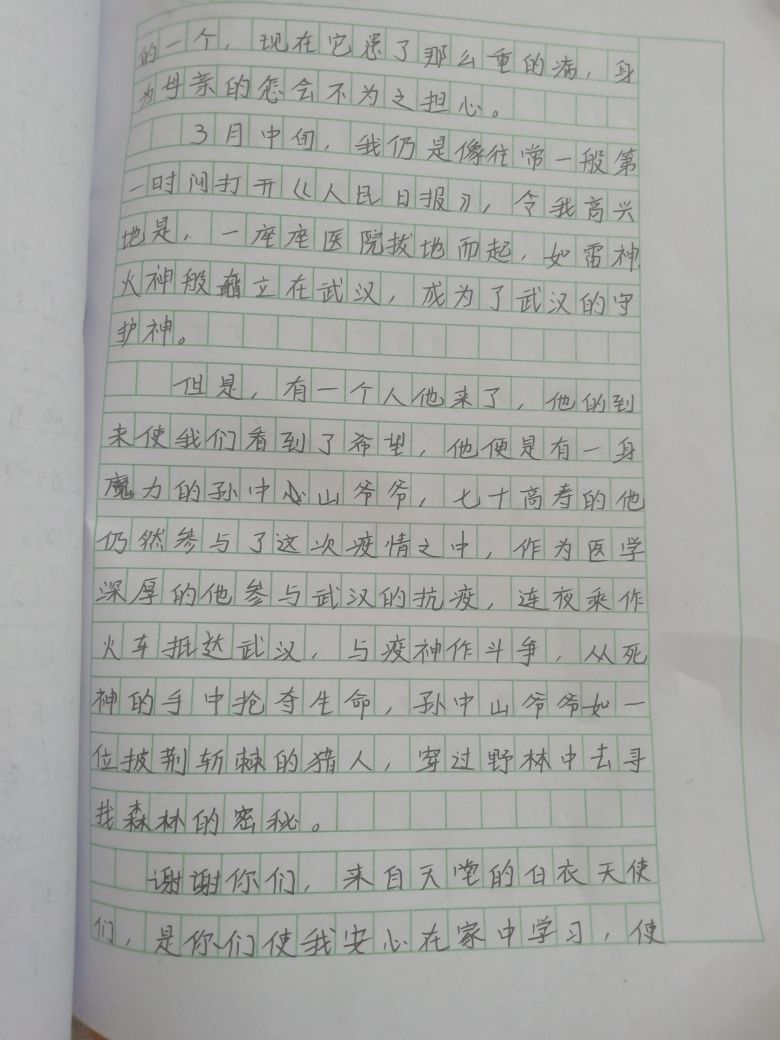 的一个，现在它患了那么重的病，身
为母亲的怎会不为之担心。
3月中旬，我仍是像往常一般第
一时间打开《人民日报》，令我高兴
地是，一座座医院拔地而起，如雷神
火神般矗立在武汉，成为了武汉的守
护神。
但是，有一个人他来了，他的到
来使我们看到了希望，他便是有一身
魔力的孙中山爷爷，七十高寿的他
仍然参与了这次疫情之中，作为医学
深厚的他参与武汉的抗疫，连夜乘作
火车抵达武汉，与疫神作斗争，从死
神的手中抢夺生命，孙中山爷爷如一
位披荆斩棘的猎人，穿过野林中去寻
找森林的密秘。
谢谢你们，来自天堂的白衣天使
们，是你们使我安心在家中学习，使